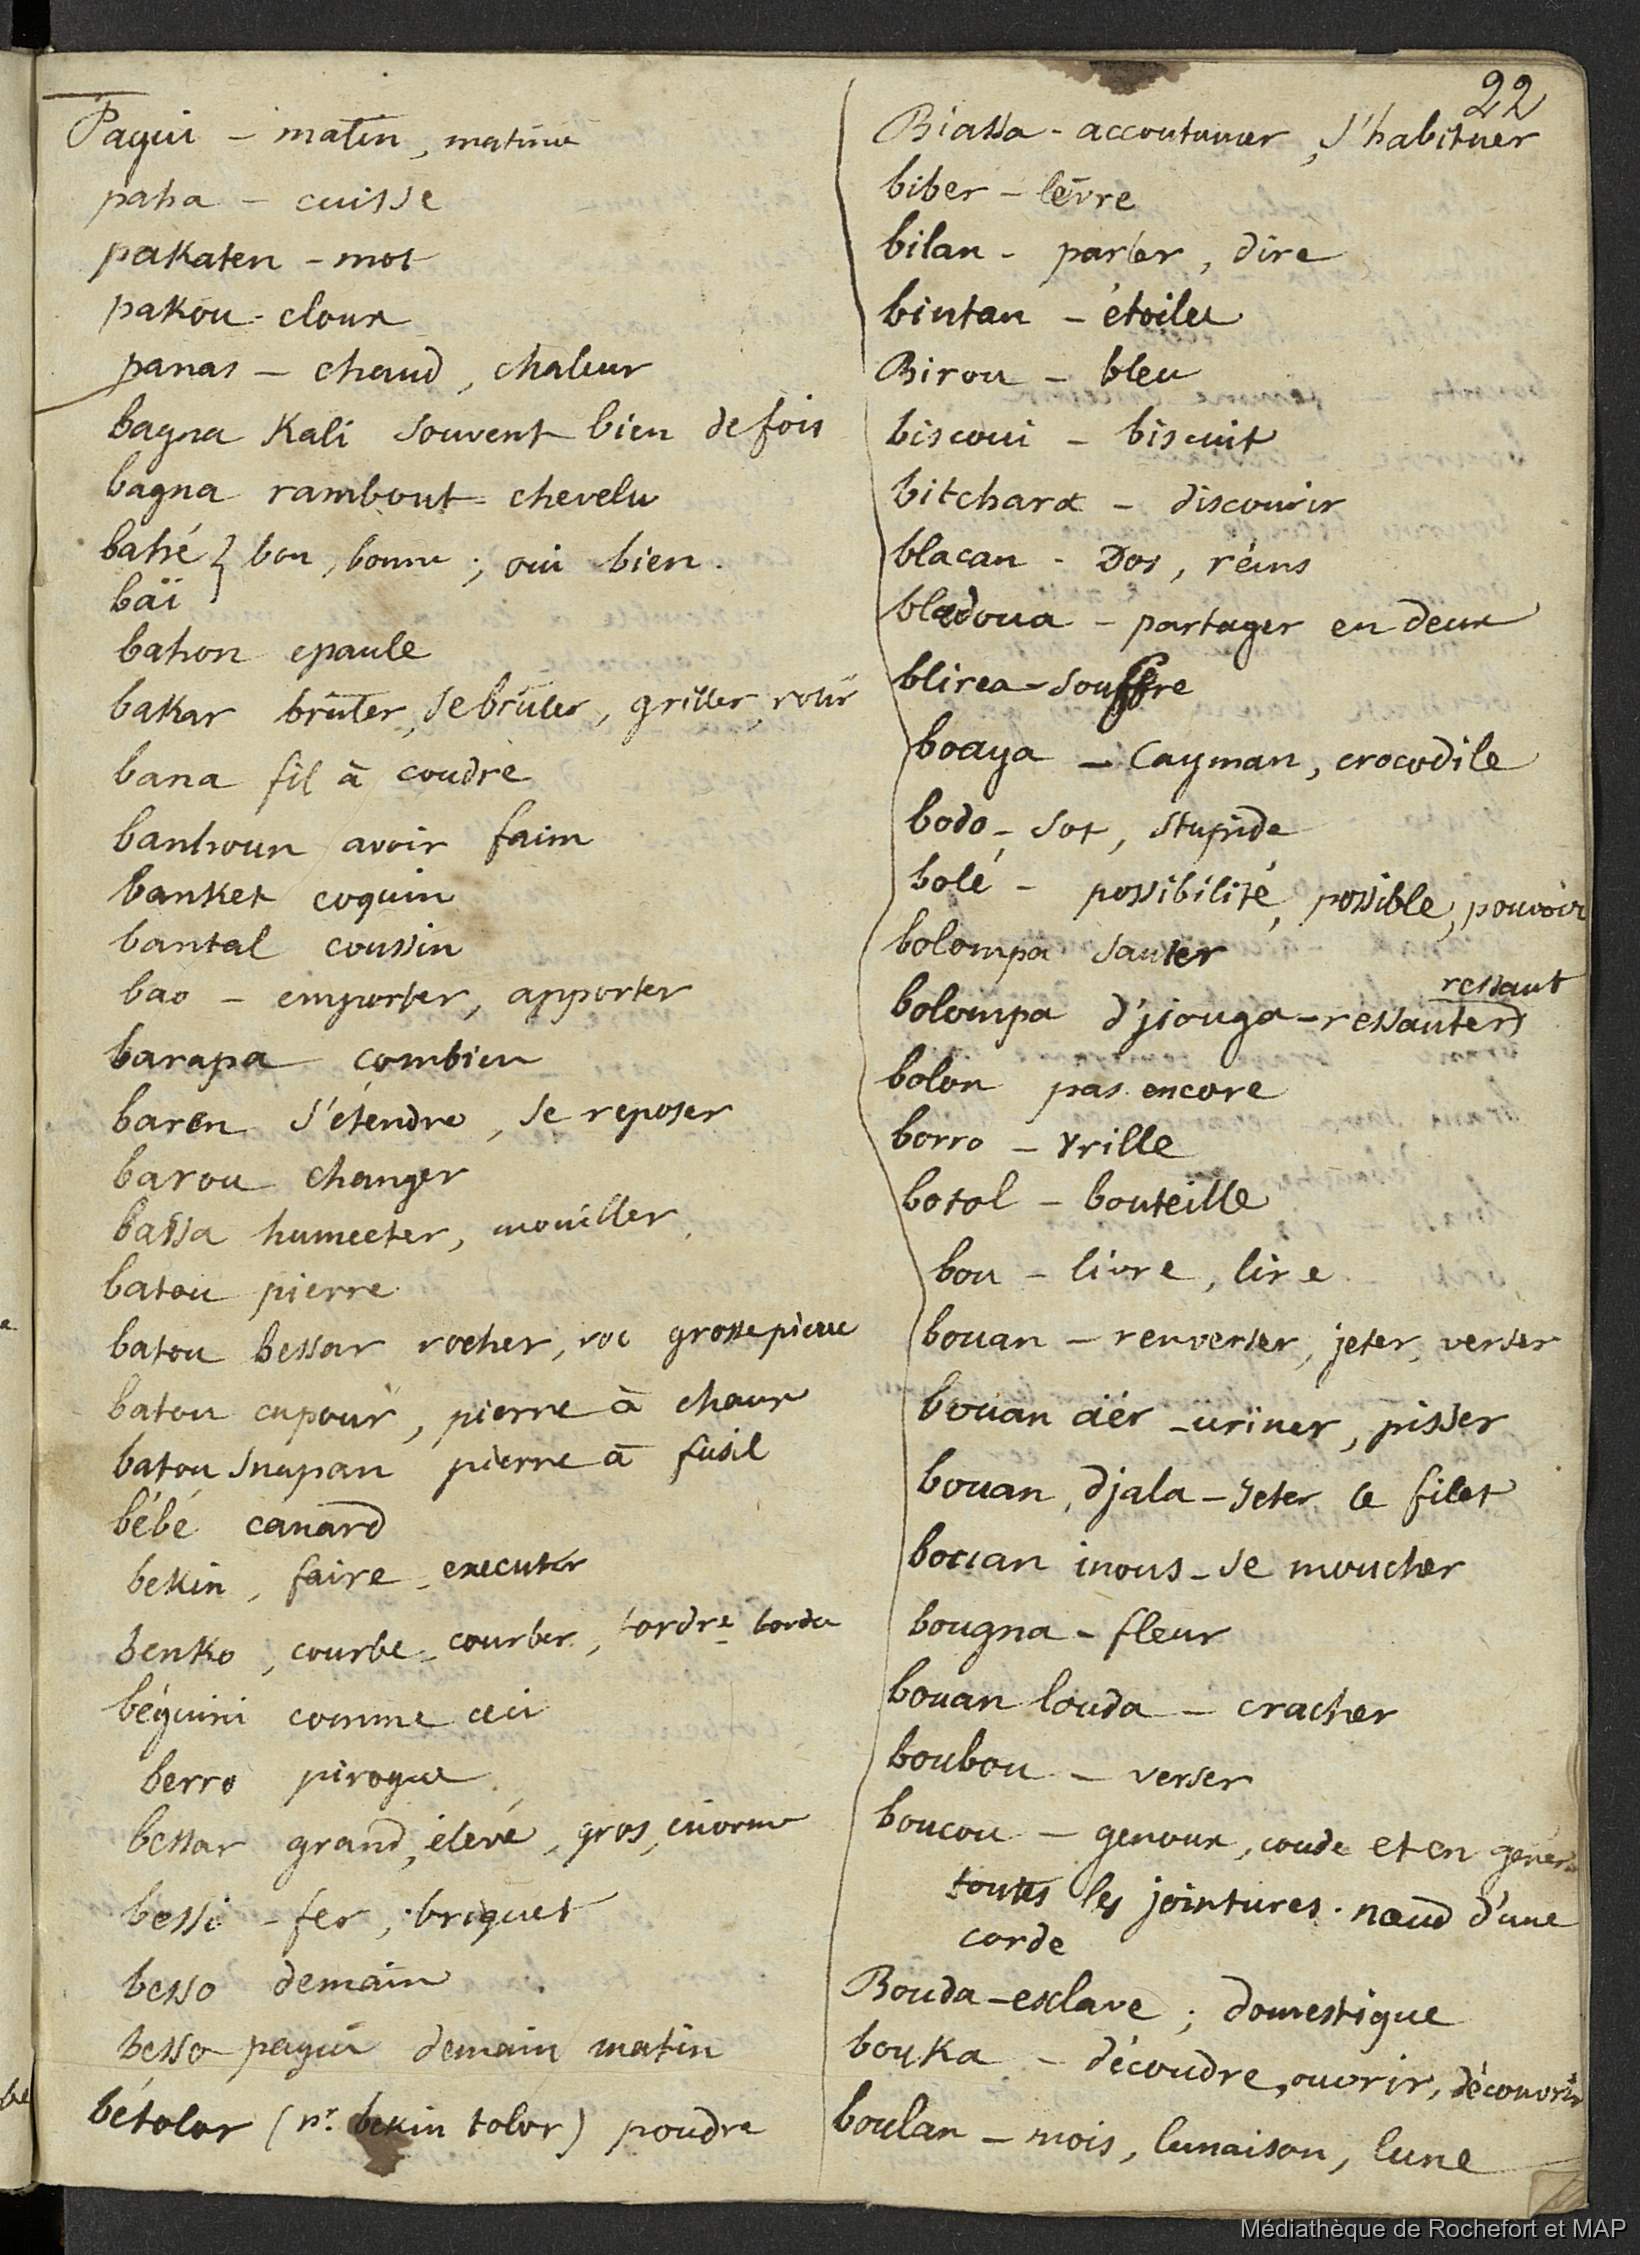 22
Pagui - matin, matinée
paha - cuisse
pakaten - mot
pakou - cloux
panas - chaud, chaleur
bagna Kali souvent bien de fois
bagna rambout - chevelu
bahé } bon, bonne ; oui bien.
bäi
bahon epaule
bakar brûler, se brûler, griller, rotir
bana fil à coudre
banhoun avoir faim
banket coquin
bantal coussin
bao - emporter, apporter
barapa combien
baren s'étendre, se reposer
barou changer
bassa humecter, mouiller,
batou pierre
batou bessar rocher, roc grosse pierre
batou capour, pierre à chaux
batou snapan pierre à fusil
bébé canard
bekin, faire - executer
benko, courbe - courber, tordre - tordu
béguini comme ceci
berro pirogue
bessar grand, élevé, gros, énorme
bessi - fer, briquet
besso demain
besso pagui demain matin
bétolor (pr. bekin tolor) poudre
Biassa - accoutumer, s'habituer
biber - lèvre
bilan - parler, dire
bintan - étoiles
Birou - bleu
biscoui - biscuit
bitchara - discourir
blacan - Dos, réins
bladoua - partager en deux
blirea - souffre
boaya - Cayman, crocodile
bodo - sot, stupide
bolé - possibilité, possible, pouvoir
bolompa sauter
ressaut
bolompa d'jiouga - réssauter
bolon pas encore
borro - vrille
botol - bouteille
bou - livre, lire
bouan - renverser, jeter, verser
bouan äër - uriner, pisser
bouan djala - Jeter le filet
bouan inous - se moucher
bougna - fleur
bouan louda - cracher
boubou - verser
boucou - genoux, coude et en génér
toutes les jointures. nœud d'une
corde
Bouda - esclave ; domestique
bouka - découdre, ouvrir, découvrir
boulan - mois, lunaison, lune
Médiathèque de Rochefort et MAP